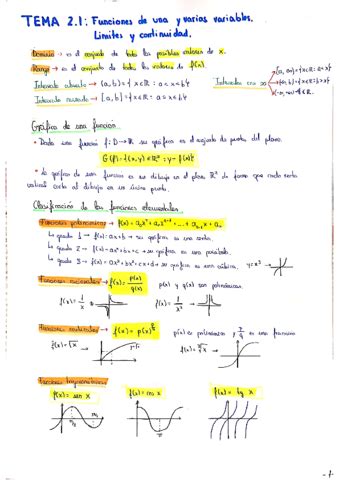 TEMA 2.1: Funciones de una y varias variables.
Límites y continuidad.
Dominio → es el conjunto de todos los posibles valores de x.
Rango → es el conjunto de todos los valores de f(x)
Intervalo abierto → (a, b) = { x ∈ ℝ : a < x < b }
Intervalo cerrado → [a, b] = { x ∈ ℝ : a ≤ x ≤ b }
Intervalos con ∞
(-∞, ∞) = ℝ.
Gráfica de una función
• Dada una función f: D → ℝ su gráfica es el conjunto de puntos del plano.
G(f) = { (x, y) ∈ ℝ² : y = f(x) }
• La gráfica de una función es su dibujo en el plano ℝ² de forma que cada recta
vertical corta al dibujo en un único punto.
Clasificación de las funciones elementales.
Funciones polinómicas → f(x) = a₀xⁿ + a₁xⁿ⁻¹ + ... + aₙ₋₁x + aₙ
grado 1 → f(x) = ax + b → su gráfica es una recta.
grado 2 → f(x) = ax² + bx + c → su gráfica es una parábola.
grado 3 → f(x) = ax³ + bx² + cx + d → su gráfica es una cúbica. y = x³ →
Funciones racionales → f(x) = p(x)/q(x) p(x) y q(x) son polinómicas.
f(x) = 1/x → f(x) = 1/x² →
Funciones radicales → p(x) es polinómica y es una fracción
f(x) = √x →
Funciones trigonométricas
f(x) = sen x f(x) = cos x f(x) = tg x
-1-